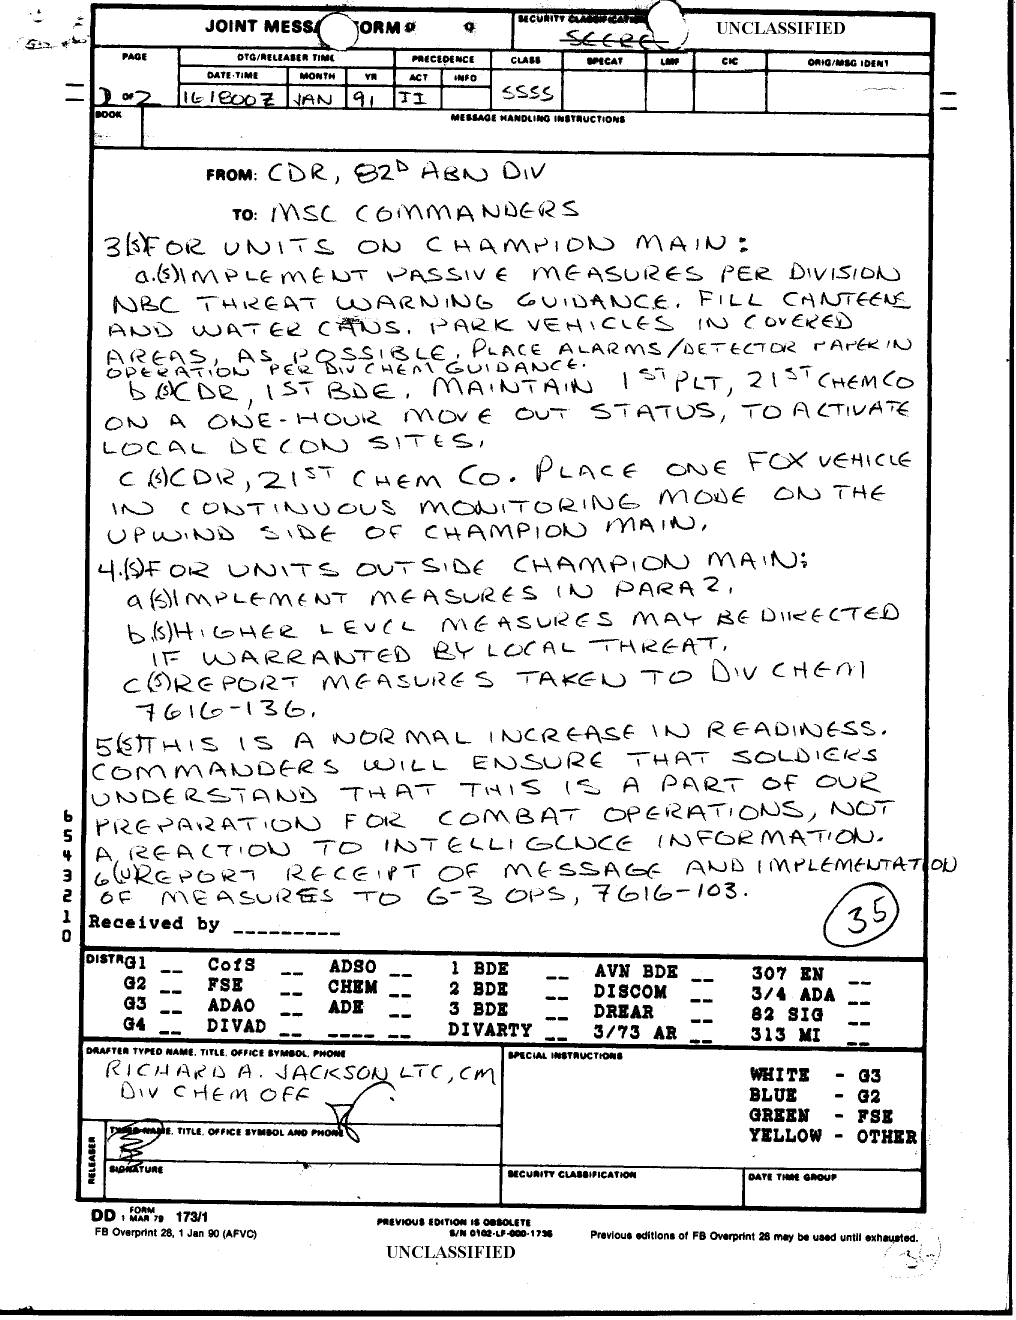 JOINT MESSA ORM
SECURITY CLASSIFICATION
SECRE
UNCLASSIFIED
PAGE
DTG/RELEASER TIME
PRECEDENCE
CLASS
SPECAT
LMF
CIC
ORIG/MSG IDENT
DATE-TIME
MONTH
YR
ACT
INFO
2 OF 2
161800Z
JAN
91
II
SSSS
BOOK
MESSAGE HANDLING INSTRUCTIONS
FROM: CDR, 82D ABN DIV
TO: MSC COMMANDERS
3(S)FOR UNITS ON CHAMPION MAIN:
a.(S)IMPLEMENT PASSIVE MEASURES PER DIVISION
NBC THREAT WARNING GUIDANCE. FILL CANTEENS
AND WATER CANS. PARK VEHICLES IN COVERED
AREAS, AS POSSIBLE. PLACE ALARMS/DETECTOR PAPER IN
OPERATION PER DIV CHEM GUIDANCE.
b (S)CDR, 1ST BDE. MAINTAIN 1ST PLT, 21ST CHEM CO
ON A ONE-HOUR MOVE OUT STATUS, TO ACTIVATE
LOCAL DECON SITES.
C (S)CDR, 21ST CHEM CO. PLACE ONE FOX VEHICLE
IN CONTINUOUS MONITORING MODE ON THE
UPWIND SIDE OF CHAMPION MAIN.
4.(S)FOR UNITS OUTSIDE CHAMPION MAIN:
a (S)IMPLEMENT MEASURES IN PARA 2.
b.(S)HIGHER LEVEL MEASURES MAY BE DIRECTED
IF WARRANTED BY LOCAL THREAT.
C (S)REPORT MEASURES TAKEN TO DIV CHEM
7616-136.
5(S)THIS IS A NORMAL INCREASE IN READINESS.
COMMANDERS WILL ENSURE THAT SOLDIERS
UNDERSTAND THAT THIS IS A PART OF OUR
PREPARATION FOR COMBAT OPERATIONS, NOT
A REACTION TO INTELLIGENCE INFORMATION.
6(U)REPORT RECEIPT OF MESSAGE AND IMPLEMENTATION
OF MEASURES TO G-3 OPS, 7616-103.
6
5
4
3
2
1
0
35
Received by _________
DISTR G1 __ CofS __ ADSO __ 1 BDE __ AVN BDE __ 307 EN __
G2 __ FSE __ CHEM __ 2 BDE __ DISCOM __ 3/4 ADA __
G3 __ ADAO __ ADE __ 3 BDE __ DREAR __ 82 SIG __
G4 __ DIVAD __ ____ __ DIVARTY __ 3/73 AR __ 313 MI __
DRAFTER TYPED NAME, TITLE, OFFICE SYMBOL, PHONE
RICHARD A. JACKSON LTC, CM
DIV CHEM OFF
SPECIAL INSTRUCTIONS
WHITE - G3
BLUE - G2
GREEN - FSE
YELLOW - OTHER
RELEASER
TYPED NAME, TITLE, OFFICE SYMBOL AND PHONE
SIGNATURE
SECURITY CLASSIFICATION
DATE TIME GROUP
DD FORM 1 MAR 79 173/1
FB Overprint 28, 1 Jan 90 (AFVC)
PREVIOUS EDITION IS OBSOLETE
S/N 0102-LF-000-1735
Previous editions of FB Overprint 28 may be used until exhausted.
UNCLASSIFIED